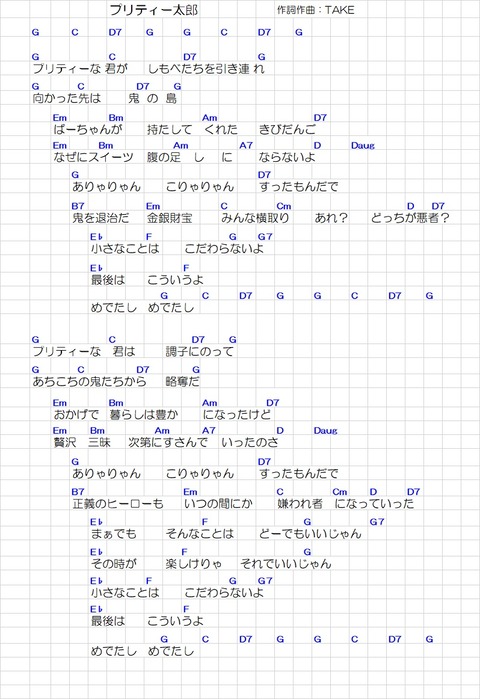 プリティー太郎 作詞作曲：TAKE
G C D7 G G C D7 G
G C D7 G
プリティーな 君が しもべたちを引き連 れ
G C D7 G
向かった先は 鬼 の 島
Em Bm Am D7
ばーちゃんが 持たして くれた きびだんご
Em Bm Am A7 D Daug
なぜにスイーツ 腹の足 し に ならないよ
G D7
ありゃりゃん こりゃりゃん すったもんだで
B7 Em C Cm D D7
鬼を退治だ 金銀財宝 みんな横取り あれ？ どっちが悪者？
E♭ F G G7
小さなことは こだわらないよ
E♭ F
最後は こういうよ
G C D7 G G C D7 G
めでたし めでたし
G C D7 G
プリティーな 君は 調子にのって
G C D7 G
あちこちの鬼たちから 略奪だ
Em Bm Am D7
おかげで 暮らしは豊か になったけど
Em Bm Am A7 D Daug
贅沢 三昧 次第にすさんで いったのさ
G D7
ありゃりゃん こりゃりゃん すったもんだで
B7 Em C Cm D D7
正義のヒーローも いつの間にか 嫌われ者 になっていった
E♭ F G G7
まぁでも そんなことは どーでもいいじゃん
E♭ F G
その時が 楽しけりゃ それでいいじゃん
E♭ F G G7
小さなことは こだわらないよ
E♭ F
最後は こういうよ
G C D7 G G C D7 G
めでたし めでたし